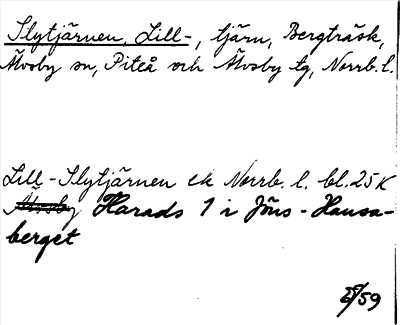 Slytjärnen, Lill-, tjärn, Bergträsk,
Älvsby sn, Piteå och Älvsby tg, Norrb. l.
Lill-Slytjärnen ek Norrb. l. bl. 25 K
Älvsby Harads 1 i Jöns-Hansa-
berget
/59